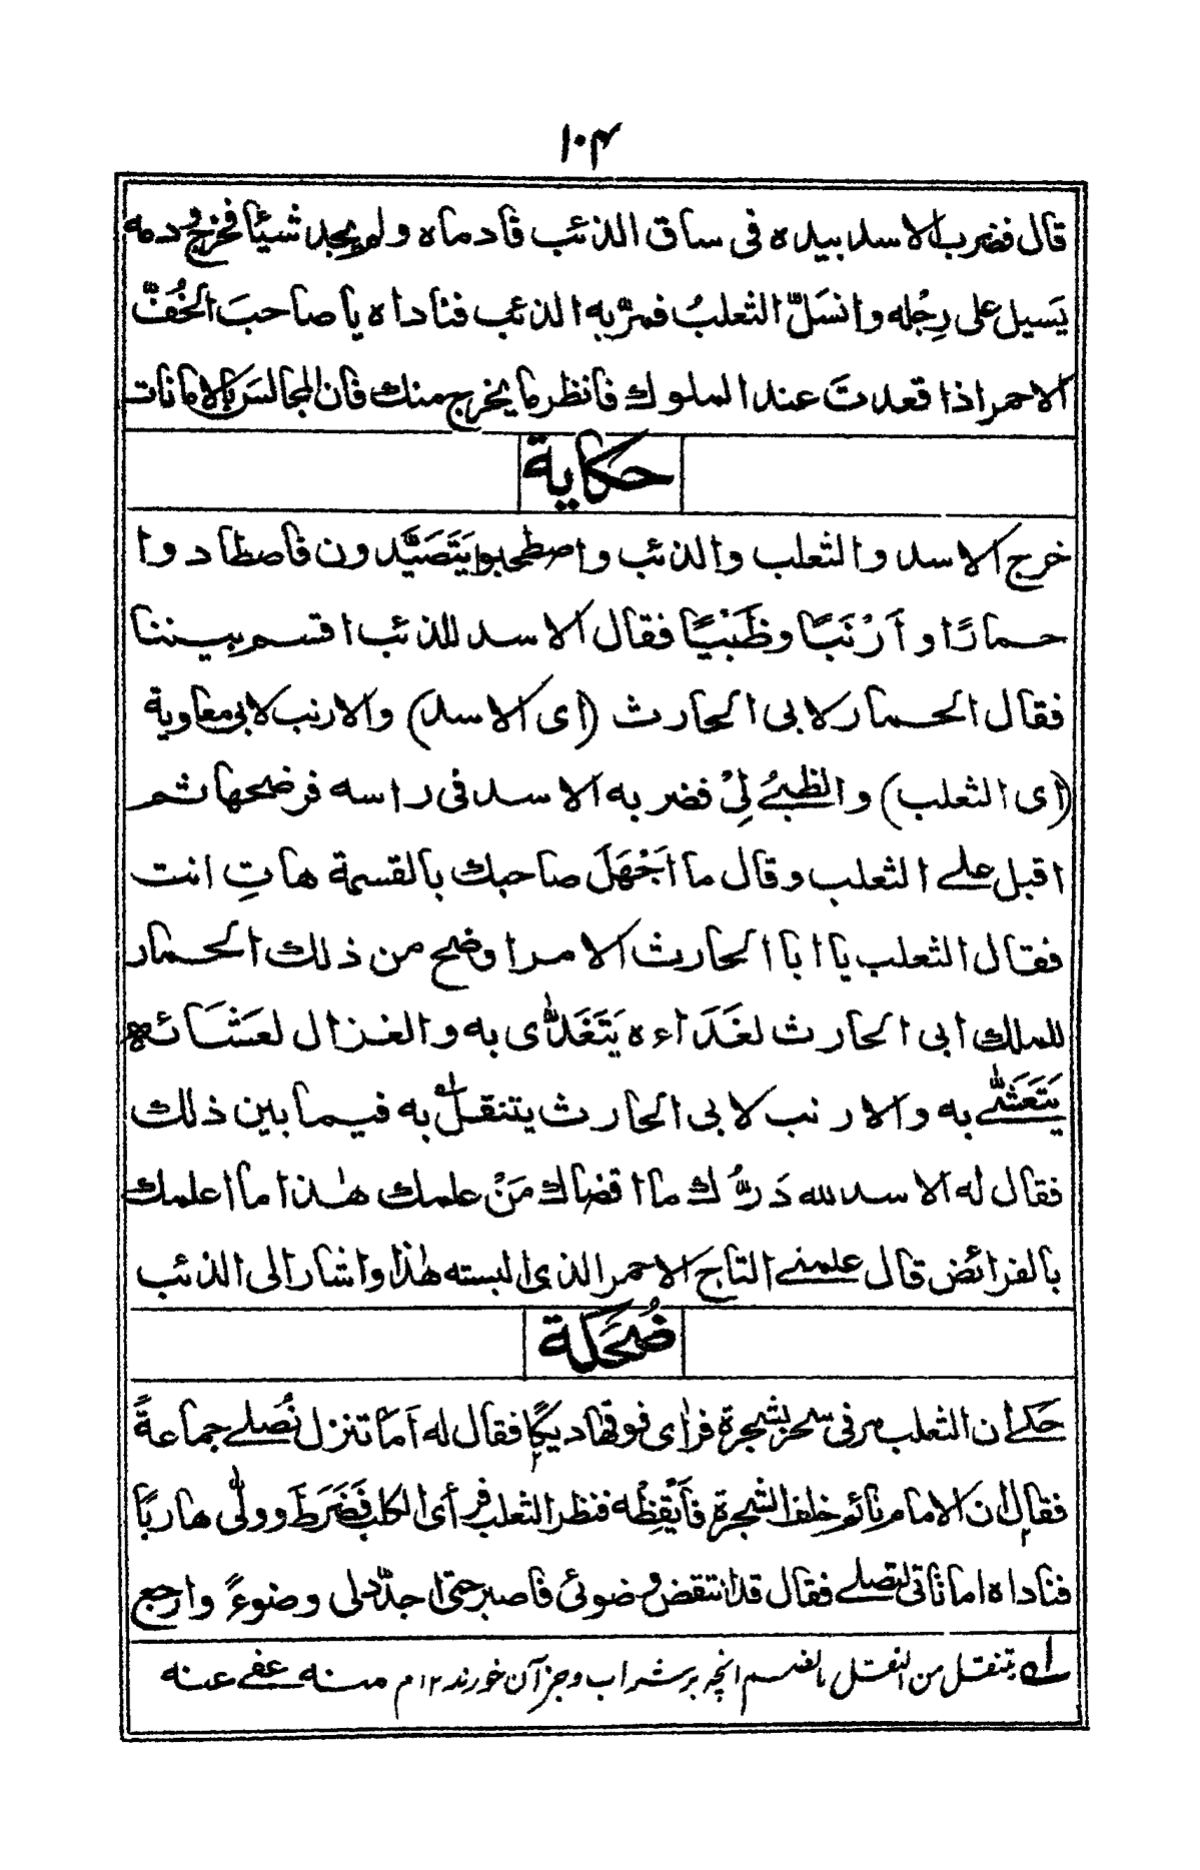 ۱۰۴
قال فضرب الاسد بيده فى ساق الذئب فادماه ولم يجد شيئا فخرج ودمه
يَسيل على رِجُله وانسَلَّ الثعلبُ فمرَّ به الذئب فناداه يا صاحبَ الخُفِّ
الاحمر اذا قعدتَ عند الملوك فانظر ما يخرج منك فان المجالسَ بالامانات
حكاية
خرج الاسد والثعلب والذئب واصطحبوا يَتَصَيَّدون فاصطادوا
حمارًا وأَرْنَبًا وظَبْيًا فقال الاسد للذئب اقسم بيننا
فقال الحمار لابى الحارث (اى الاسد) والارنب لابى معاوية
(اى الثعلب) والظبىُ لِىْ فضربه الاسد فى راسه فرضحها ثم
اقبل على الثعلب وقال ما اَجْهَلَ صاحبك بالقسمة هاتِ انت
فقال الثعلب يا ابا الحارث الامر اوضح من ذلك الحمار
للملك ابى الحارث لغَدَاءه يَتَغَدّٰى به والغزال لعَشَائه
يَتَعَشّٰے به والارنب لابى الحارث يتنقل له به فيما بين ذلك
فقال له الاسد لله دَرُّك ما اقضاك مَنْ علمك هٰذا ما اعلمك
بالفرائض قال علمنے التاج الاحمر الذى البسته هٰذا واشار الى الذئب
ضُحَكة
حَكے ان الثعلب مر فى سحر بشجرة فراى فوقها ديكًا فقال له اَمَا تنزل نُصلے جماعةً
فقال ان الامام نائم خلف الشجرة فأَيْقِظْه فنظر الثعلب فرأى الكلب فَضَرَطَ وولّٰى هاربًا
فناداه اما تاتى لنصلے فقال قد انتقض وضوئى فاصبر حتى اجدّد لى وضوءً وارجع
لـه يتنقل من النقل بالضم انچه بر شراب وجز آن خورند ۱۲ م منه عفے عنه